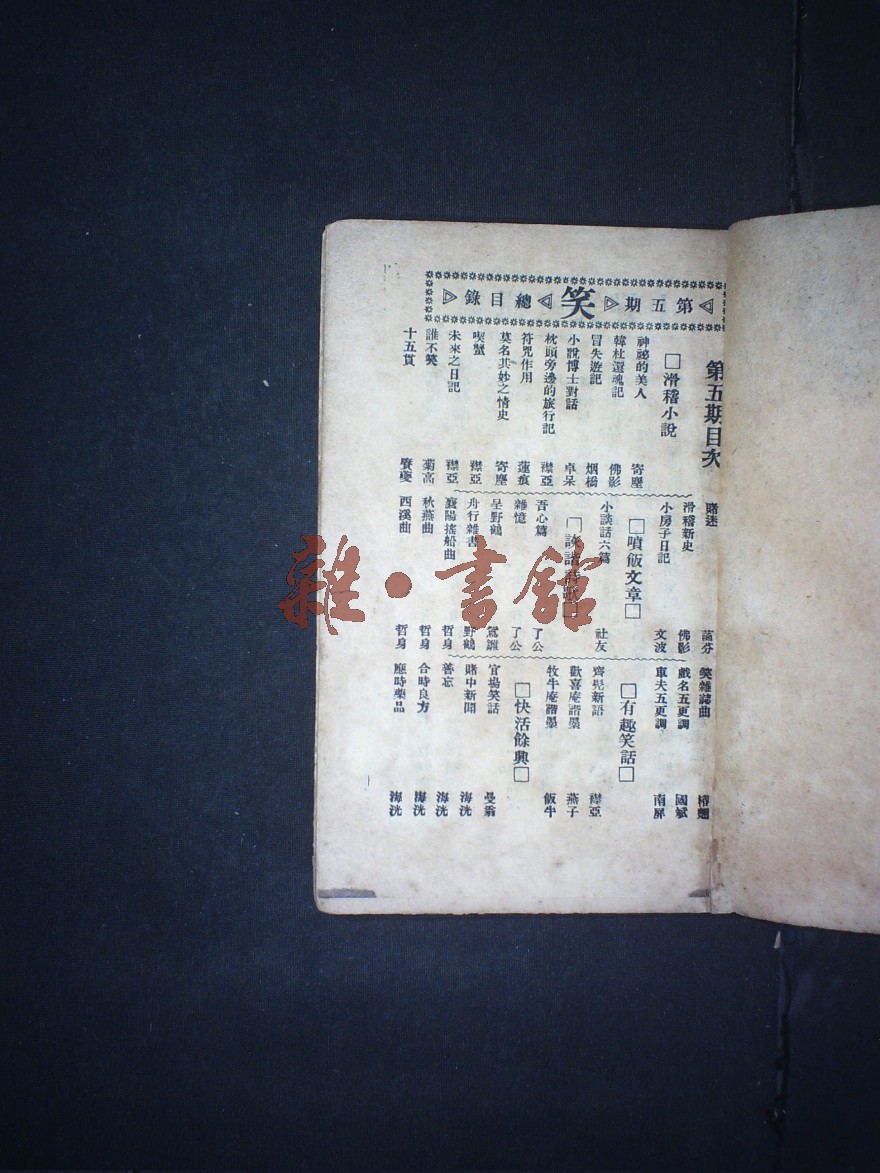 第五期 笑 總目錄
第五期目次
□滑稽小說
神祕的美人 寄塵
韓杜還魂記 佛影
冒失遊記 烟橋
小說博士對話 卓呆
枕頭旁邊的旅行記 襟亞
符咒作用 蓮痕
莫名其妙之情史 寄塵
喫蟹 襟亞
未來之日記 襟亞
誰不笑 菊高
十五貫 賡夔
賭迷 菌芬
滑稽新史 佛影
小房子日記 文波
□噴飯文章□
小談話六篇 社友
□詼諧詩歌□
吾心篇 了公
雜憶 了公
呈野鶴
舟行雜書 野鶴
襄陽搖船曲 哲身
秋燕曲 哲身
西溪曲 哲身
笑雜誌曲 椿翹
戲名五更調 國斌
車夫五更調 南屏
□有趣笑話□
齊兒新語 襟亞
歡喜庵諧墨 燕子
牧牛庵諧墨 飯牛
□快活餘興□
官場笑話 曼翁
賭中新聞 海洸
善忘 海洸
合時良方 海洸
應時藥品 海洸
雜·書館